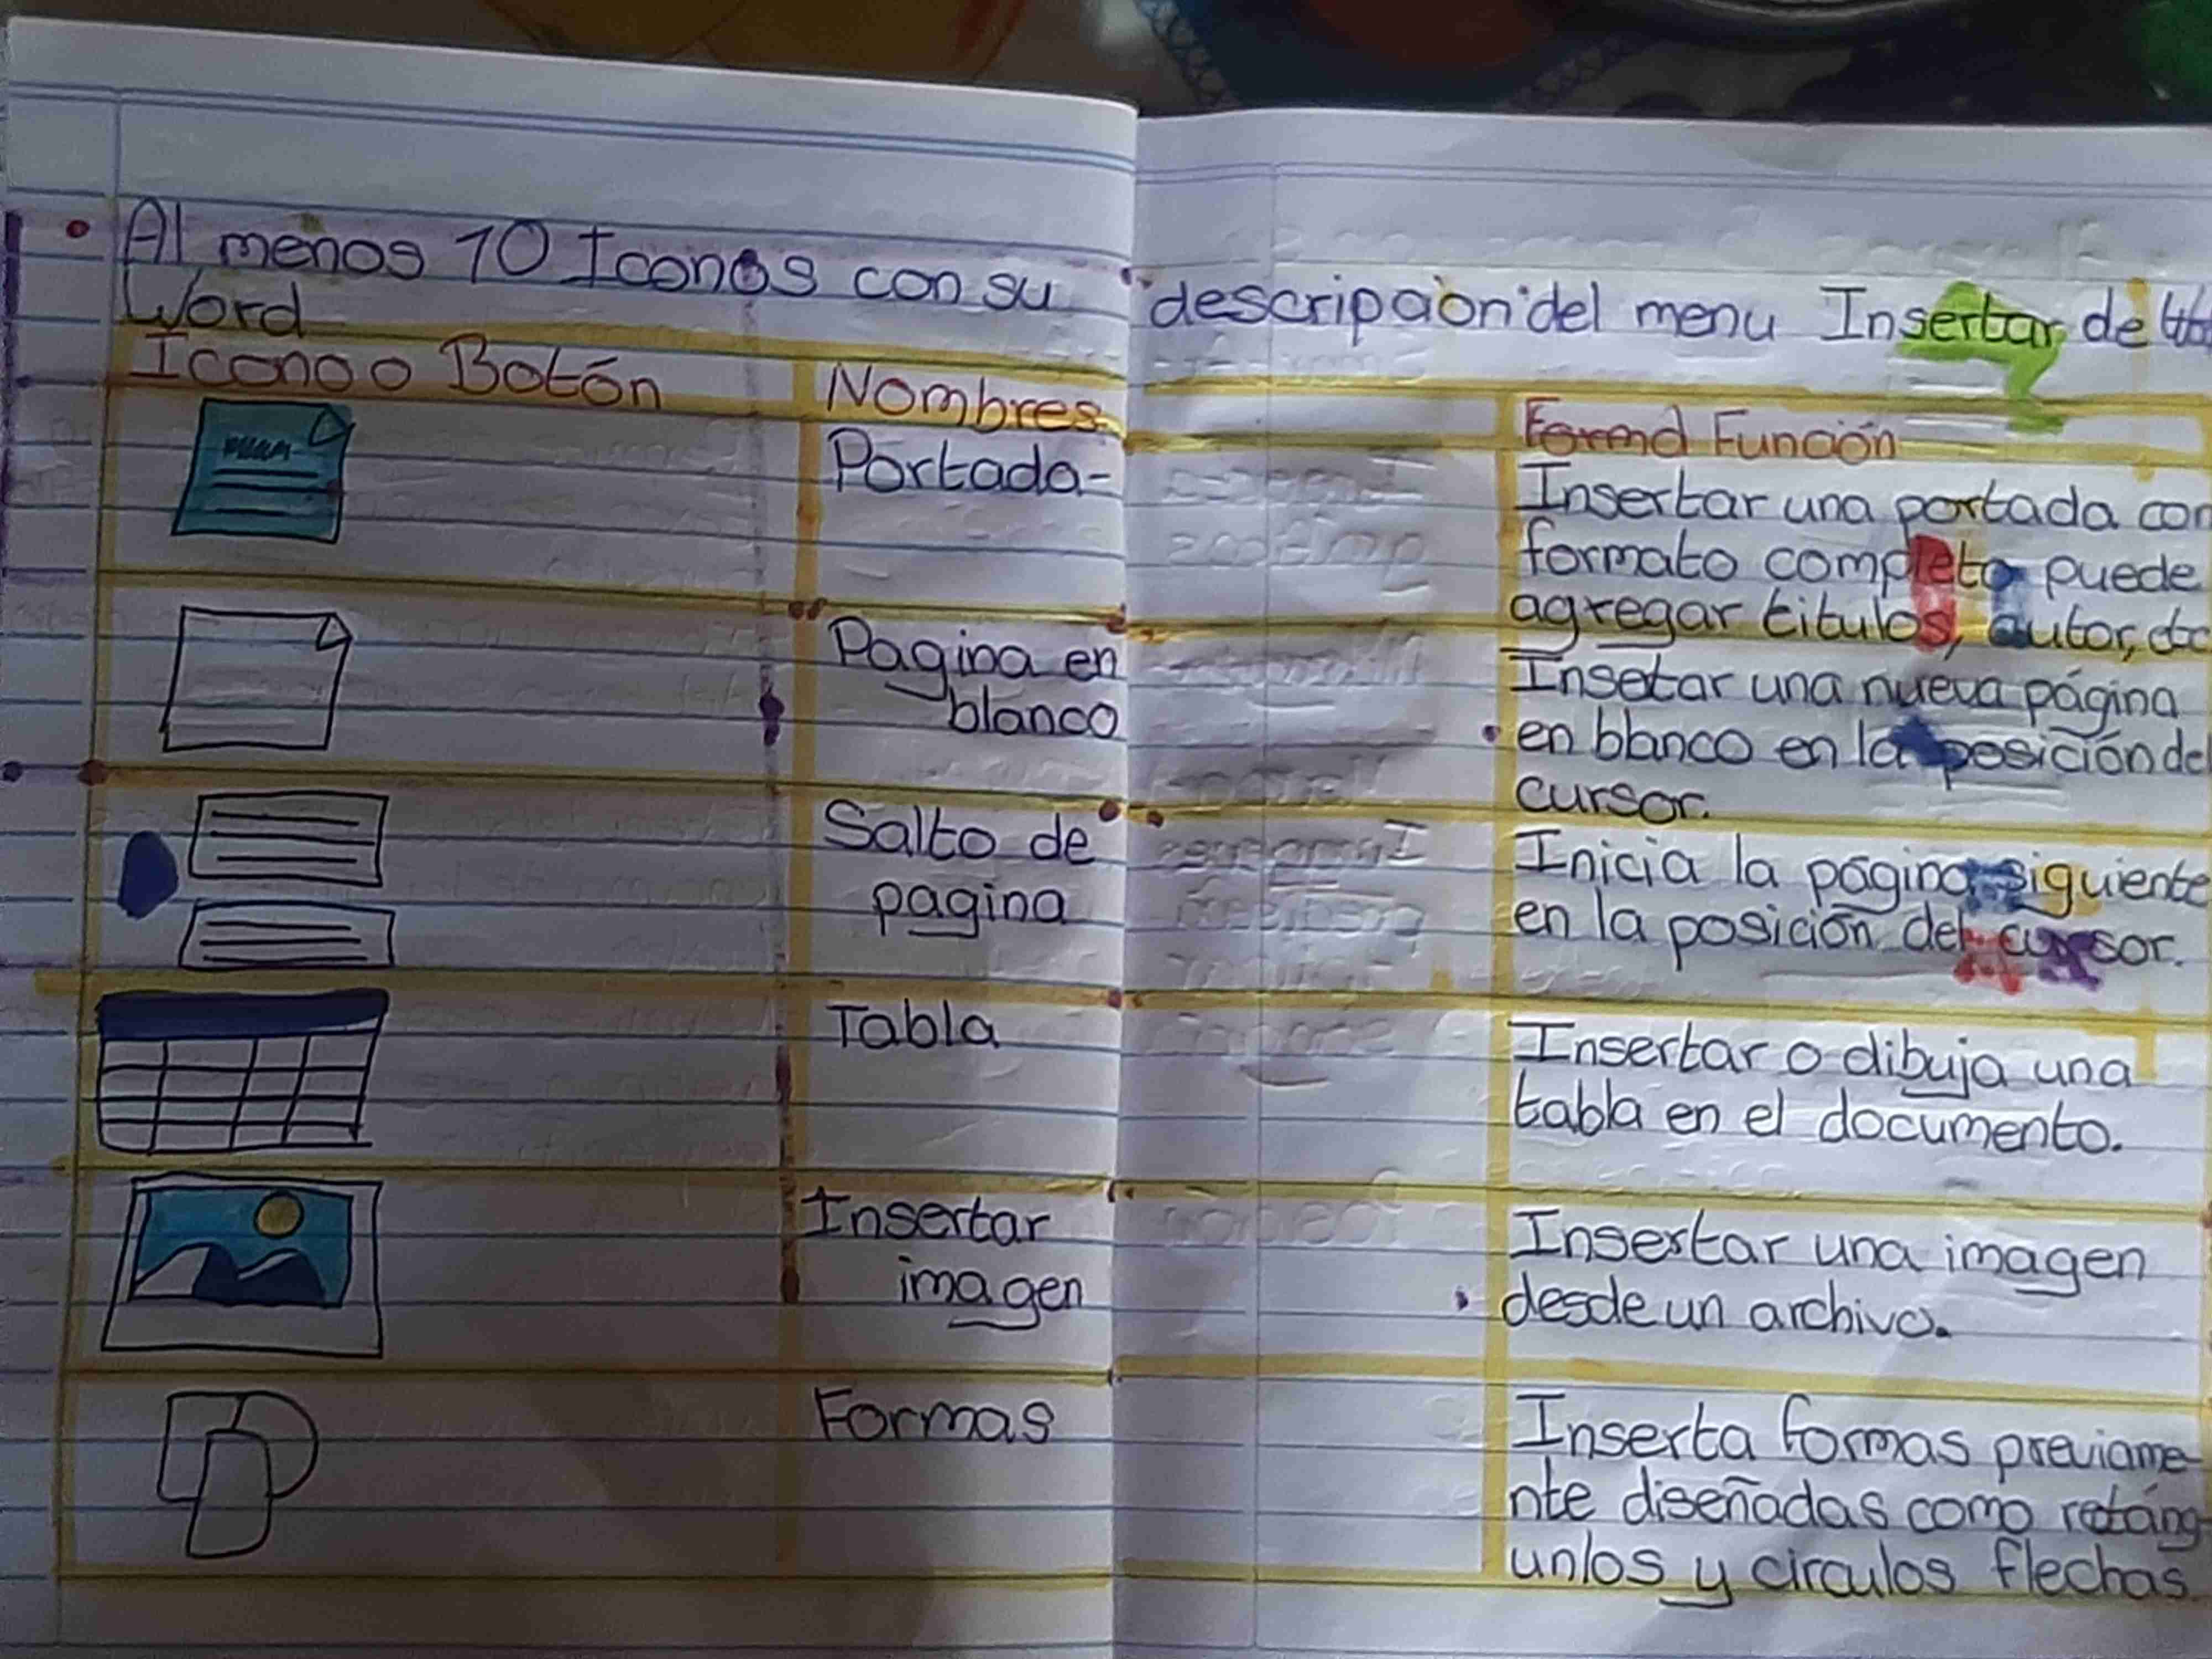 Al menos 10 Iconos con su descripción del menu Insertar de
Word
Icono o Botón Nombres Función
Portada- Insertar una portada con
formato completo puede
agregar titulos, autor,
Pagina en Insetar una nueva página
blanco en blanco en la posición del
cursor.
Salto de Inicia la página siguiente
pagina en la posición del cursor.
Tabla Insertar o dibuja una
tabla en el documento.
Insertar Insertar una imagen
imagen desde un archivo.
Formas Inserta formas previame-
nte diseñadas como retáng
unlos y circulos flechas.